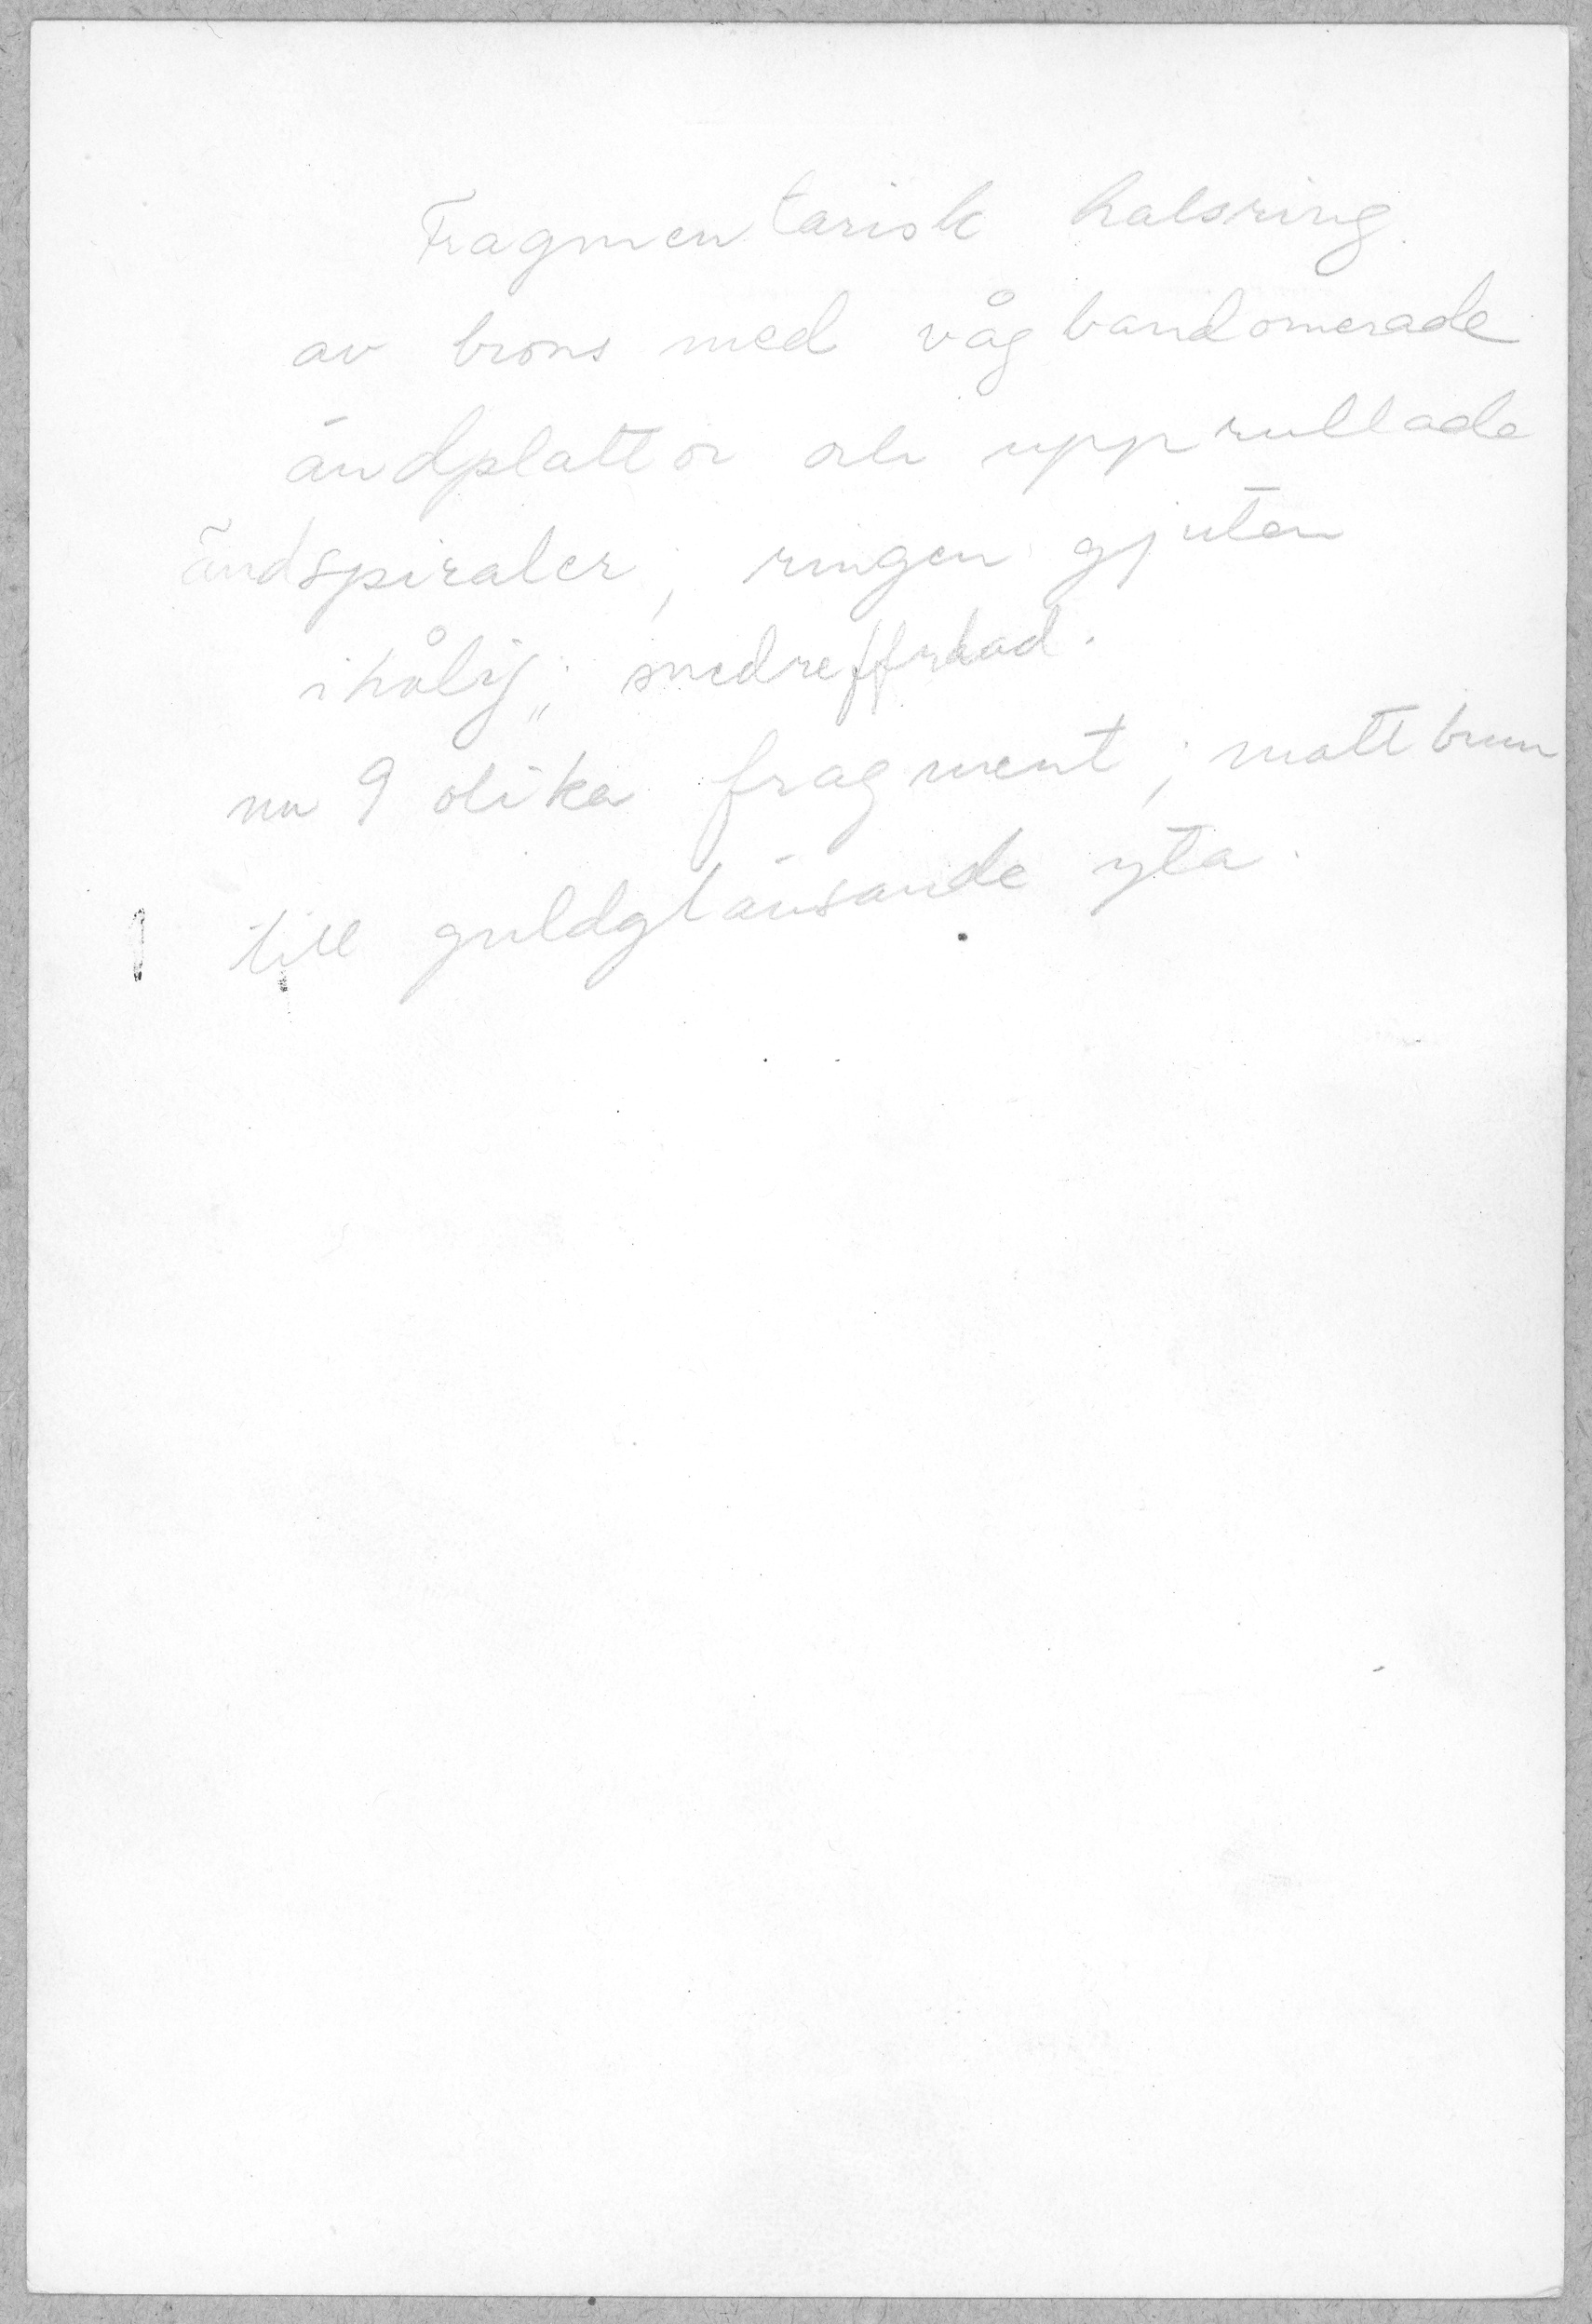 Fragmentarisk halsring
av brons med vågbandornerade
ändplattor och upprullade
ändspiraler, ringen gjuten
ihålig; snedreffflad.
nu 9 olika fragment; mattbrun
till guldglänsande yta.